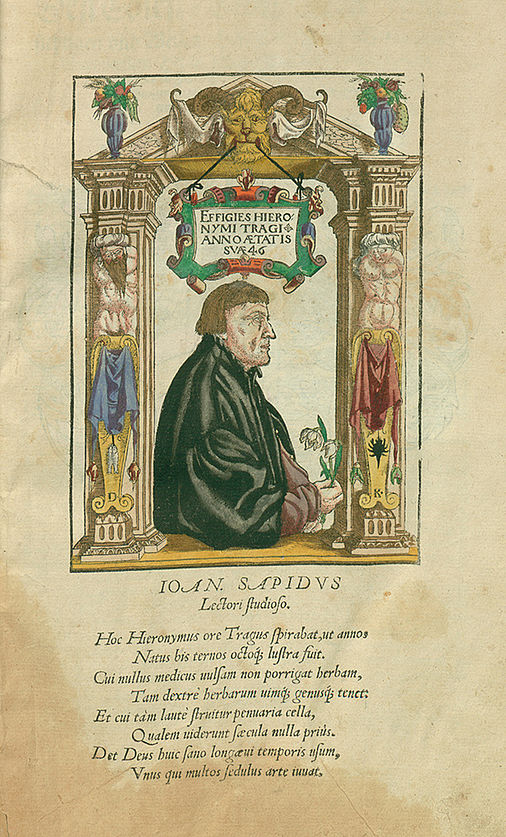 EFFIGIES HIERO-
NYMI TRAGI
ANNO ÆTATIS
SVÆ 46
D
K
IOAN. SAPIDVS
Lectori studioso.
Hoc Hieronymus ore Tragus spirabat, ut annos
Natus bis ternos octoq́; lustra fuit.
Cui nullus medicus uulsam non porrigat herbam,
Tam dextrè herbarum uimq́; genusq́; tenet:
Et cui tàm lautè struitur penuaria cella,
Qualem uiderunt sæcula nulla priùs.
Det Deus huic sano longæui temporis usum,
Vnus qui multos sedulus arte iuuat.